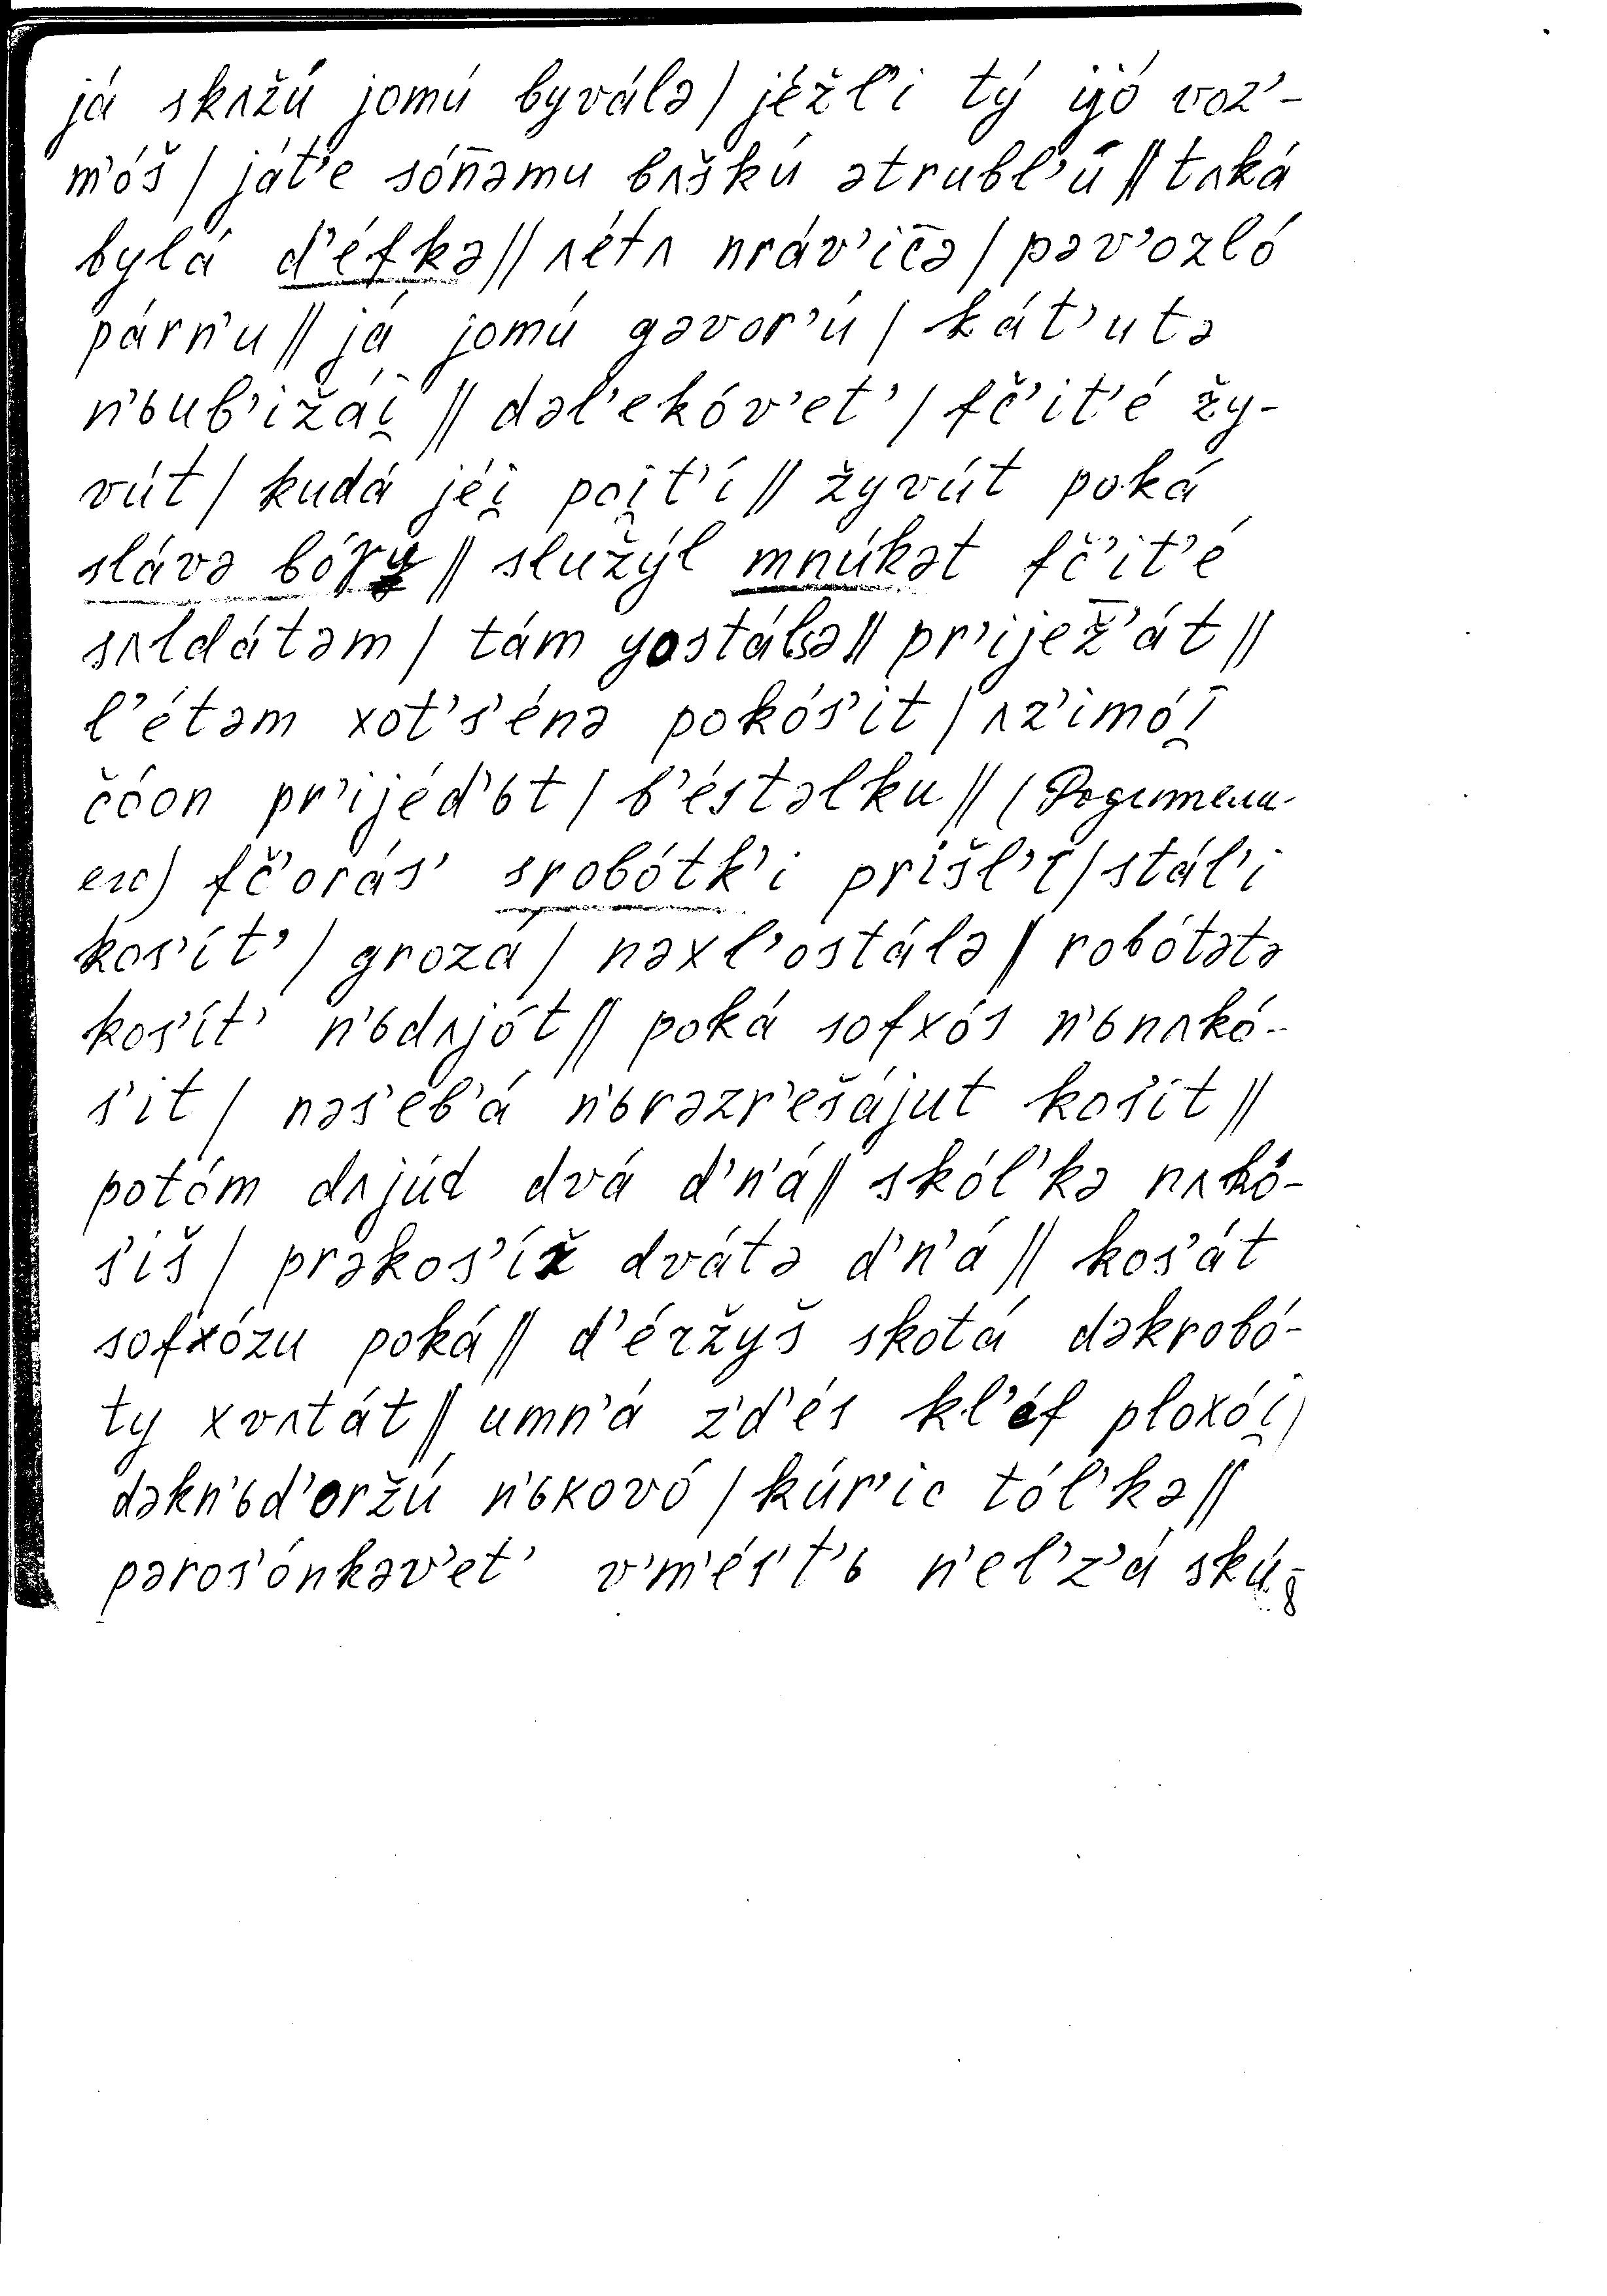 já skʌžú jomú byválə / jéžl’i tý ijó voz’-
m’óš / ját’e són̄əmu bʌškú ətrubl’ú // tʌká
bylá d’éfkə // ʌétʌ nráv’ic̄ə / pəv’ozló
párn’u // já jomú gəvor’ú / kát’utə
n’ьub’ižái̯ // dəl’ekóv’et’ / fč’it’é žy-
vút / kudá jéi̯ poi̯t’í // žyvút poká
slávə bóγu // služýl mnúkət fč’it’é
sʌldátəm / tám γostálsə // pr’ijež̄’át //
l’étəm xot’s’énə pokós’it / ʌz’imói̯
čóon pr’ijéd’ьt / b’éstəlku // (Родители-
ею) fč’orás’ srobótk’i prišl’í / stál’i
kos’ít’ / grozá / nəxl’ostálə // robótətə
kos’ít’ n’ьdʌjót // poká sofxós n’ьnʌkó-
s’it / nəs’eb’á n’ьrəzr’ešájut kos’it //
potóm dʌjúd dvá d’n’á // skól’kə nʌkó-
s’iš / prəkos’íž dvátə d’n’á // kos’át
sofxózu poká // d’éržyš skotá dəkrobó-
ty xvʌtát // umn’á z’d’és kl’éf ploxói̯ /
dəkn’ьd’oržú n’ьkovó / kúr’ic tól’kə //
pəros’ónkəv’et’ v’m’és’t’ь n’el’z’á skú-